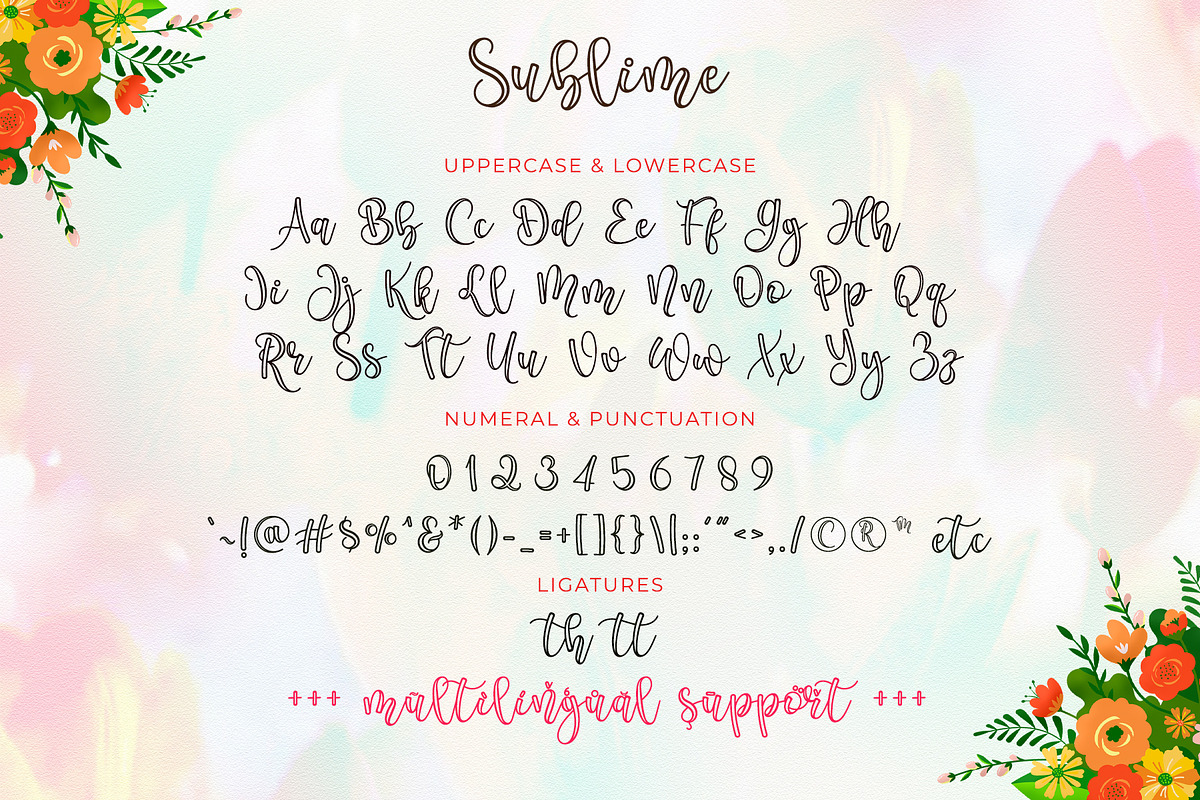 Sublime
UPPERCASE & LOWERCASE
Aa Bb Cc Dd Ee Ff Gg Hh
Ii Jj Kk Ll Mm Nn Oo Pp Qq
Rr Ss Tt Uu Vv Ww Xx Yy Zz
NUMERAL & PUNCTUATION
0 1 2 3 4 5 6 7 8 9
`~!@#$%^&*()-_=+[]{}\|;:'"<>,./©®™ etc
LIGATURES
th tt
+++ mūltilíňġuăl şūppőřt +++